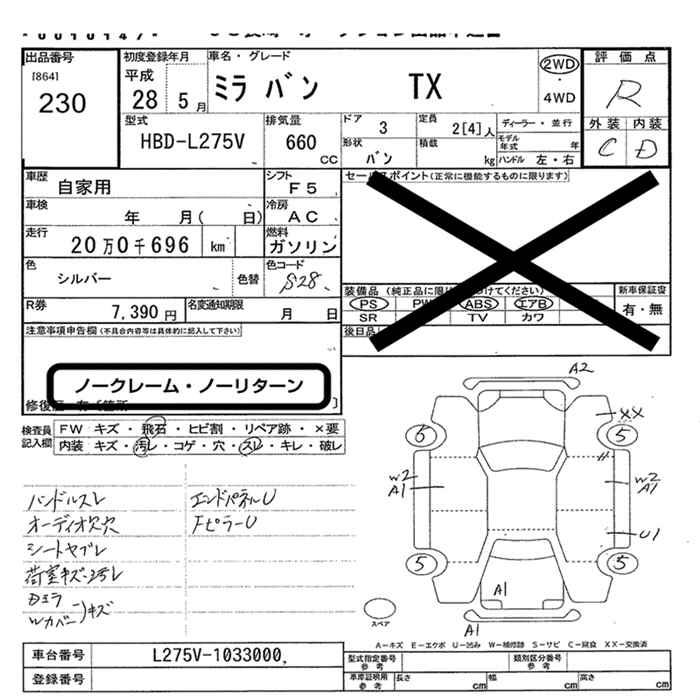 出品番号
[864]
230
初度登録年月
平成
28 5月
車名・グレード
ミラ バン TX
2WD
・
4WD
評価点
R
外装 内装
C D
型式
HBD-L275V
排気量
660
CC
ドア
3
定員
2[4]人
形状
バン
積載
kg
ディーラー・並行
モデル年式 年
ハンドル 左・右
車歴
自家用
シフト
F5
車検
年 月( 日)
冷房
AC
走行
20万0千696 km
燃料
ガソリン
色
シルバー
色替
色コード
S28
R券
7,390円
名変通知期限
月 日
セールスポイント(正常に機能するものに限ります)
装備品(純正品に限り けてください)
PS PW ABS エアB
SR TV カワ
新車保証書
有・無
後日品
注意事項申告欄(不具合内容等は具体的に記入して下さい)
ノークレーム・ノーリターン
検査員
記入欄
FW キズ・飛石・ヒビ割・リペア跡・×要
内装 キズ・汚レ・コゲ・穴・スレ・キレ・破レ
ハンドルスレ
オーディオ欠穴
シートヤブレ
荷室キズ・汚レ
エンドパネルU
FピラーU
Wカバー
キズ
A2
XX
6
5
W2
A1
W2
A1
U1
5
5
A1
A1
スペア
A-キズ E-エクボ U-凹み W-補修跡 S-サビ C-腐食 XX-交換済
車台番号
L275V-1033000
登録番号
型式指定番号
参考
類別区分番号
参考
車庫証明用
参考
長さ cm
幅 cm
高さ cm